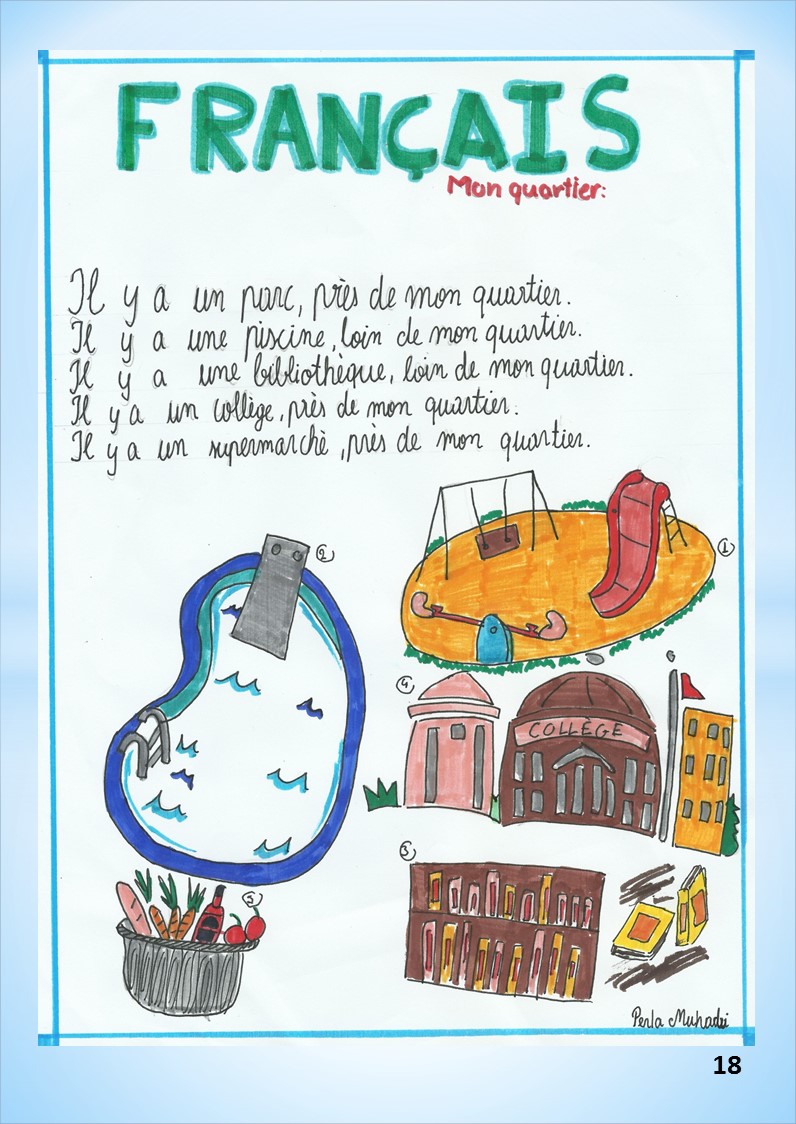 FRANÇAIS
Mon quartier:
Il y a un parc, près de mon quartier.
Il y a une piscine, loin de mon quartier.
Il y a une bibliothèque, loin de mon quartier.
Il y a un collège, près de mon quartier.
Il y a un supermarchè, près de mon quartier.
2
1
4
COLLÈGE
3
5
Perla
18